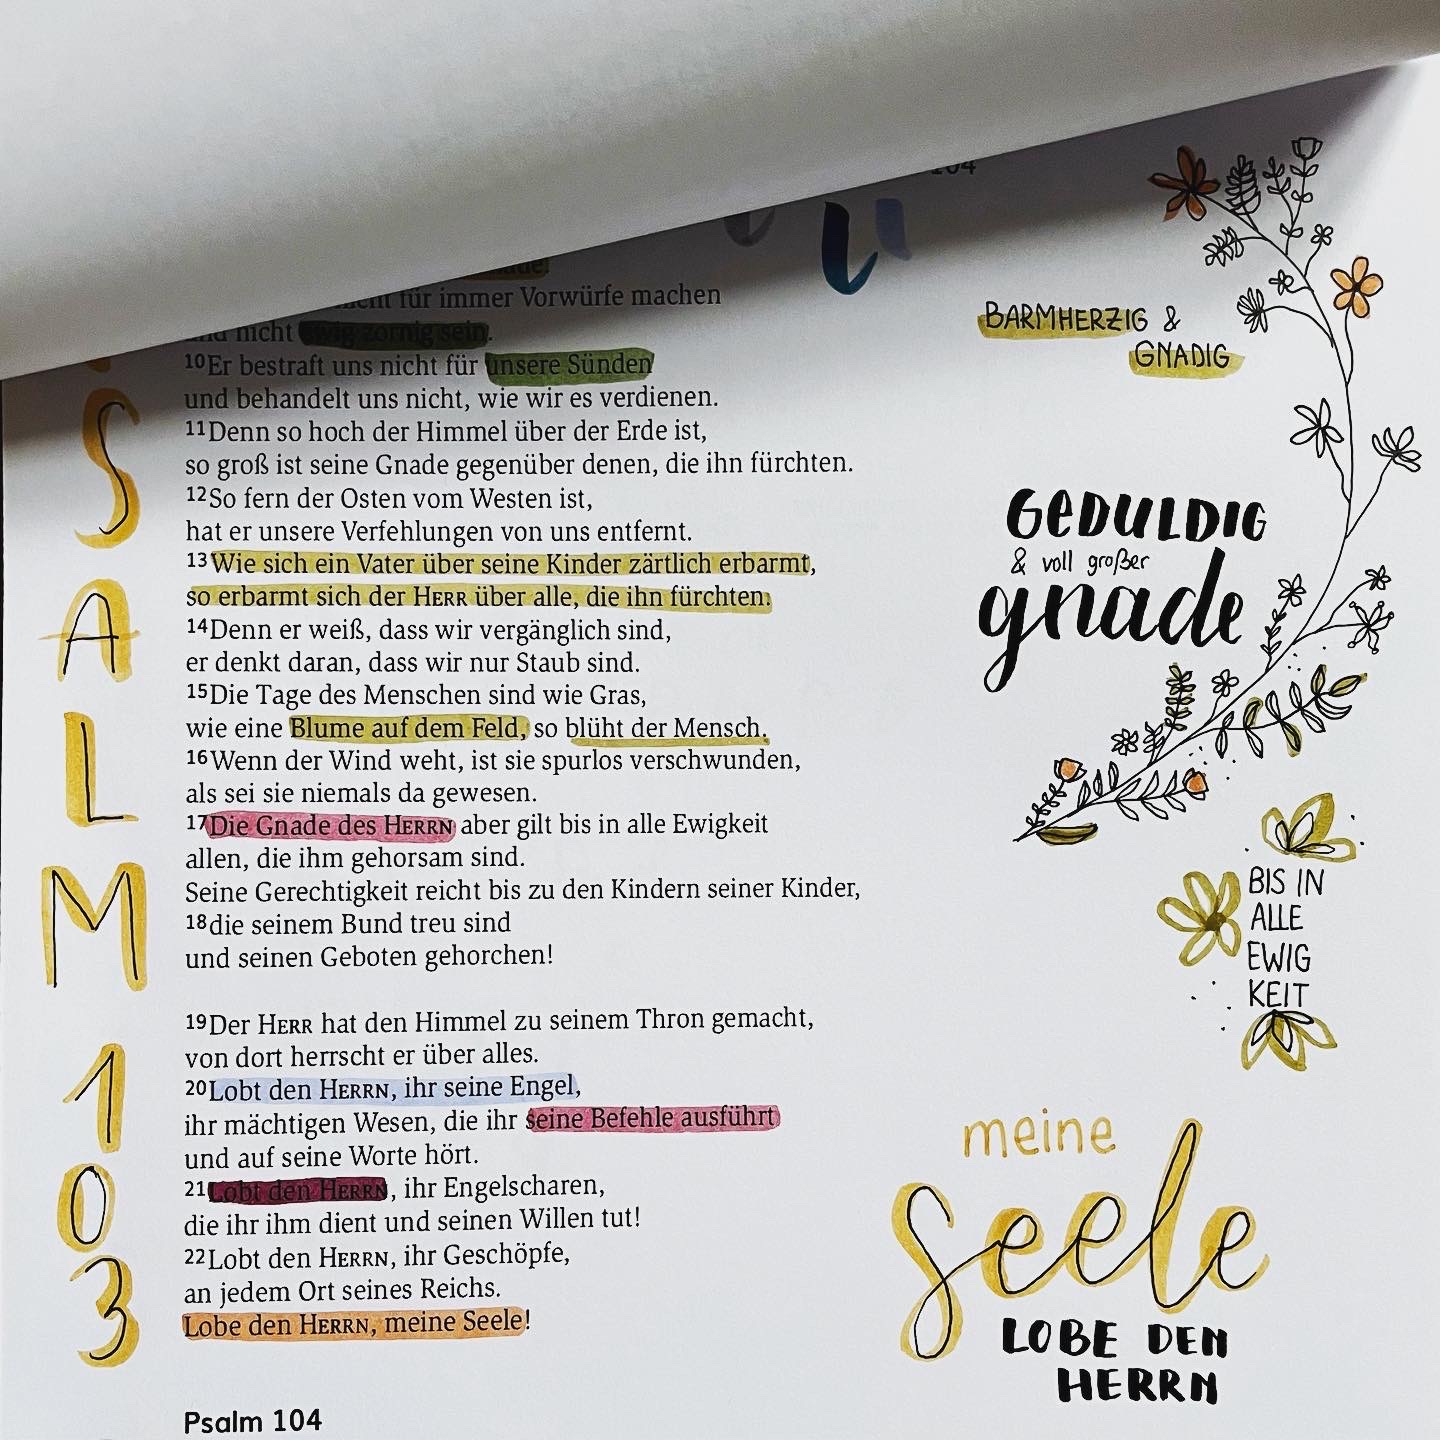 104
für immer Vorwürfe machen
nicht ewig zornig sein.
10Er bestraft uns nicht für unsere Sünden
und behandelt uns nicht, wie wir es verdienen.
11Denn so hoch der Himmel über der Erde ist,
so groß ist seine Gnade gegenüber denen, die ihn fürchten.
12So fern der Osten vom Westen ist,
hat er unsere Verfehlungen von uns entfernt.
13Wie sich ein Vater über seine Kinder zärtlich erbarmt,
so erbarmt sich der HERR über alle, die ihn fürchten.
14Denn er weiß, dass wir vergänglich sind,
er denkt daran, dass wir nur Staub sind.
15Die Tage des Menschen sind wie Gras,
wie eine Blume auf dem Feld, so blüht der Mensch.
16Wenn der Wind weht, ist sie spurlos verschwunden,
als sei sie niemals da gewesen.
17Die Gnade des HERRN aber gilt bis in alle Ewigkeit
allen, die ihm gehorsam sind.
Seine Gerechtigkeit reicht bis zu den Kindern seiner Kinder,
18die seinem Bund treu sind
und seinen Geboten gehorchen!
19Der HERR hat den Himmel zu seinem Thron gemacht,
von dort herrscht er über alles.
20Lobt den HERRN, ihr seine Engel,
ihr mächtigen Wesen, die ihr seine Befehle ausführt
und auf seine Worte hört.
21Lobt den HERRN, ihr Engelscharen,
die ihr ihm dient und seinen Willen tut!
22Lobt den HERRN, ihr Geschöpfe,
an jedem Ort seines Reichs.
Lobe den HERRN, meine Seele!
Psalm 104
SALM
103
BARMHERZIG &
GNADIG
GEDULDIG
& voll großer
gnade
BIS IN
ALLE
EWIG
KEIT
meine
Seele
LOBE DEN
HERRN